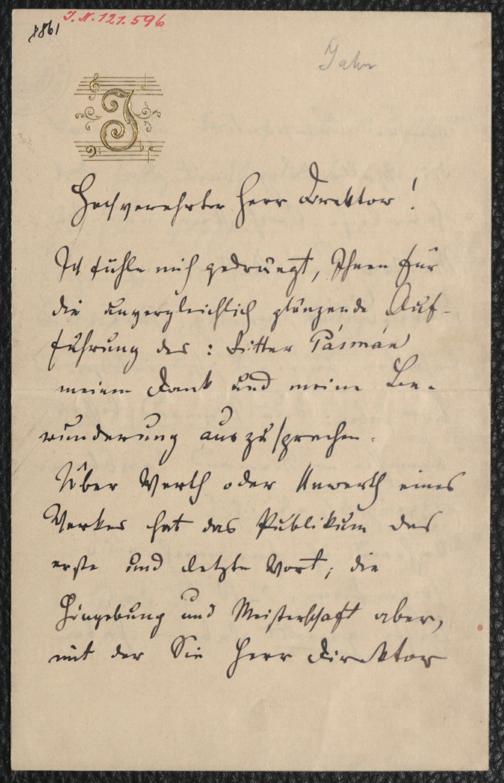 1861
I.N. 121.596
Jahn
J
Hochverehrter Herr Direktor!
Ich fühle mich gedrängt, Ihnen für
die unvergleichlich glänzende Auf-
führung des: Ritter Pásmán
meinen Dank und meine Be-
wunderung auszusprechen.
Über Werth oder Unwerth eines
Werkes hat das Publikum das
erste und letzte Wort; die
Hingebung und Meisterschaft aber,
mit der Sie Herr Direktor